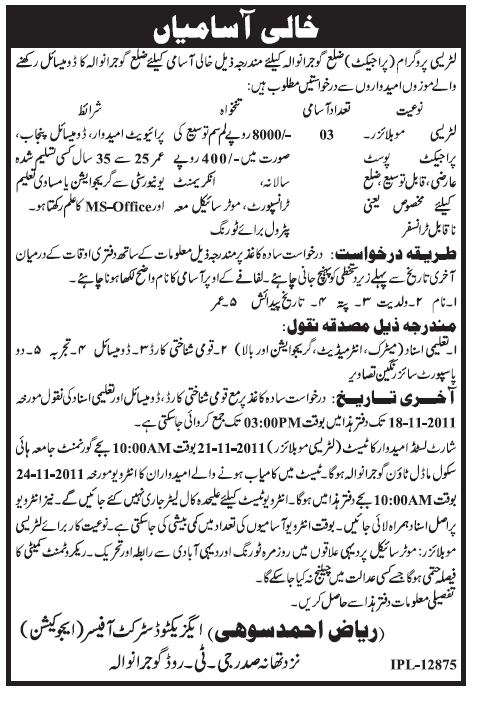 خالی آسامیاں
لٹریسی پروگرام (پراجیکٹ) ضلع گوجرانوالہ کیلئے مندرجہ ذیل خالی آسامی کیلئے ضلع گوجرانوالہ کا ڈومیسائل رکھنے
والے موزوں امیدواروں سے درخواستیں مطلوب ہیں:
نوعیت تعداد آسامی تنخواہ شرائط
لٹریسی موبلائزر۔ 03 8000/- روپے لم سم توسیع کی پرائیویٹ امیدوار، ڈومیسائل پنجاب،
پراجیکٹ پوسٹ صورت میں 400/- روپے عمر 25 سے 35 سال کسی تسلیم شدہ
عارضی، قابل توسیع، ضلع سالانہ، انکریمنٹ یونیورسٹی سے گریجوایشن یا مساوی تعلیم
کیلئے مخصوص یعنی ٹرانسپورٹ، موٹر سائیکل معہ اور MS-Office کا علم رکھتا ہو۔
ناقابل ٹرانسفر پٹرول برائے ٹورنگ
طریقہ درخواست: درخواست سادہ کاغذ پر مندرجہ ذیل معلومات کے ساتھ دفتری اوقات کے درمیان
آخری تاریخ سے پہلے زیر دستخطی کو پہنچ جانی چاہئے۔ لفافے کے اوپر آسامی کا نام واضح لکھا ہونا چاہئے۔
۱۔ نام ۲۔ ولدیت ۳۔ پتہ ۴۔ تاریخ پیدائش ۵۔ عمر
مندرجہ ذیل مصدقہ نقول:
۱۔ تعلیمی اسناد (میٹرک، انٹرمیڈیٹ، گریجوایشن اور بالا) ۲۔ قومی شناختی کارڈ ۳۔ ڈومیسائل ۴۔ تجربہ ۵۔ دو
پاسپورٹ سائز رنگین تصاویر
آخری تاریخ: درخواست سادہ کاغذ پر مع قومی شناختی کارڈ، ڈومیسائل اور تعلیمی اسناد کی نقول مورخہ
18-11-2011 تک دفتر ہذا میں بوقت 03:00PM تک جمع کروائی جا سکتی ہے۔
شارٹ لسٹڈ امیدوار کا ٹیسٹ (لٹریسی موبلائزر) 21-11-2011 بوقت 10:00AM بجے گورنمنٹ جامعہ ہائی
سکول ماڈل ٹاؤن گوجرانوالہ ہوگا۔ ٹیسٹ میں کامیاب ہونے والے امیدواران کا انٹرویو مورخہ 24-11-2011
بوقت 10:00AM بجے دفتر ہذا میں ہوگا۔ انٹرویو/ٹیسٹ کیلئے علیحدہ کال لیٹر جاری نہیں کئے جائیں گے۔ نیز انٹرویو
پر اصل اسناد ہمراہ لائی جائیں۔ بوقت انٹرویو آسامیوں کی تعداد میں کمی بیشی کی جا سکتی ہے۔ نوعیت کار برائے لٹریسی
موبلائزر: موٹر سائیکل پر دیہی علاقوں میں روزمرہ ٹورنگ اور دیہی آبادی سے رابطہ اور تحریک۔ ریکروٹمنٹ کمیٹی کا
فیصلہ حتمی ہوگا جسے کسی عدالت میں چیلنج نہ کیا جا سکے گا۔
تفصیلی معلومات دفتر ہذا سے حاصل کریں۔
(ریاض احمد سوھی) ایگزیکٹو ڈسٹرکٹ آفیسر (ایجوکیشن)
نزد تھانہ صدر جی۔ ٹی۔ روڈ گوجرانوالہ
IPL-12875